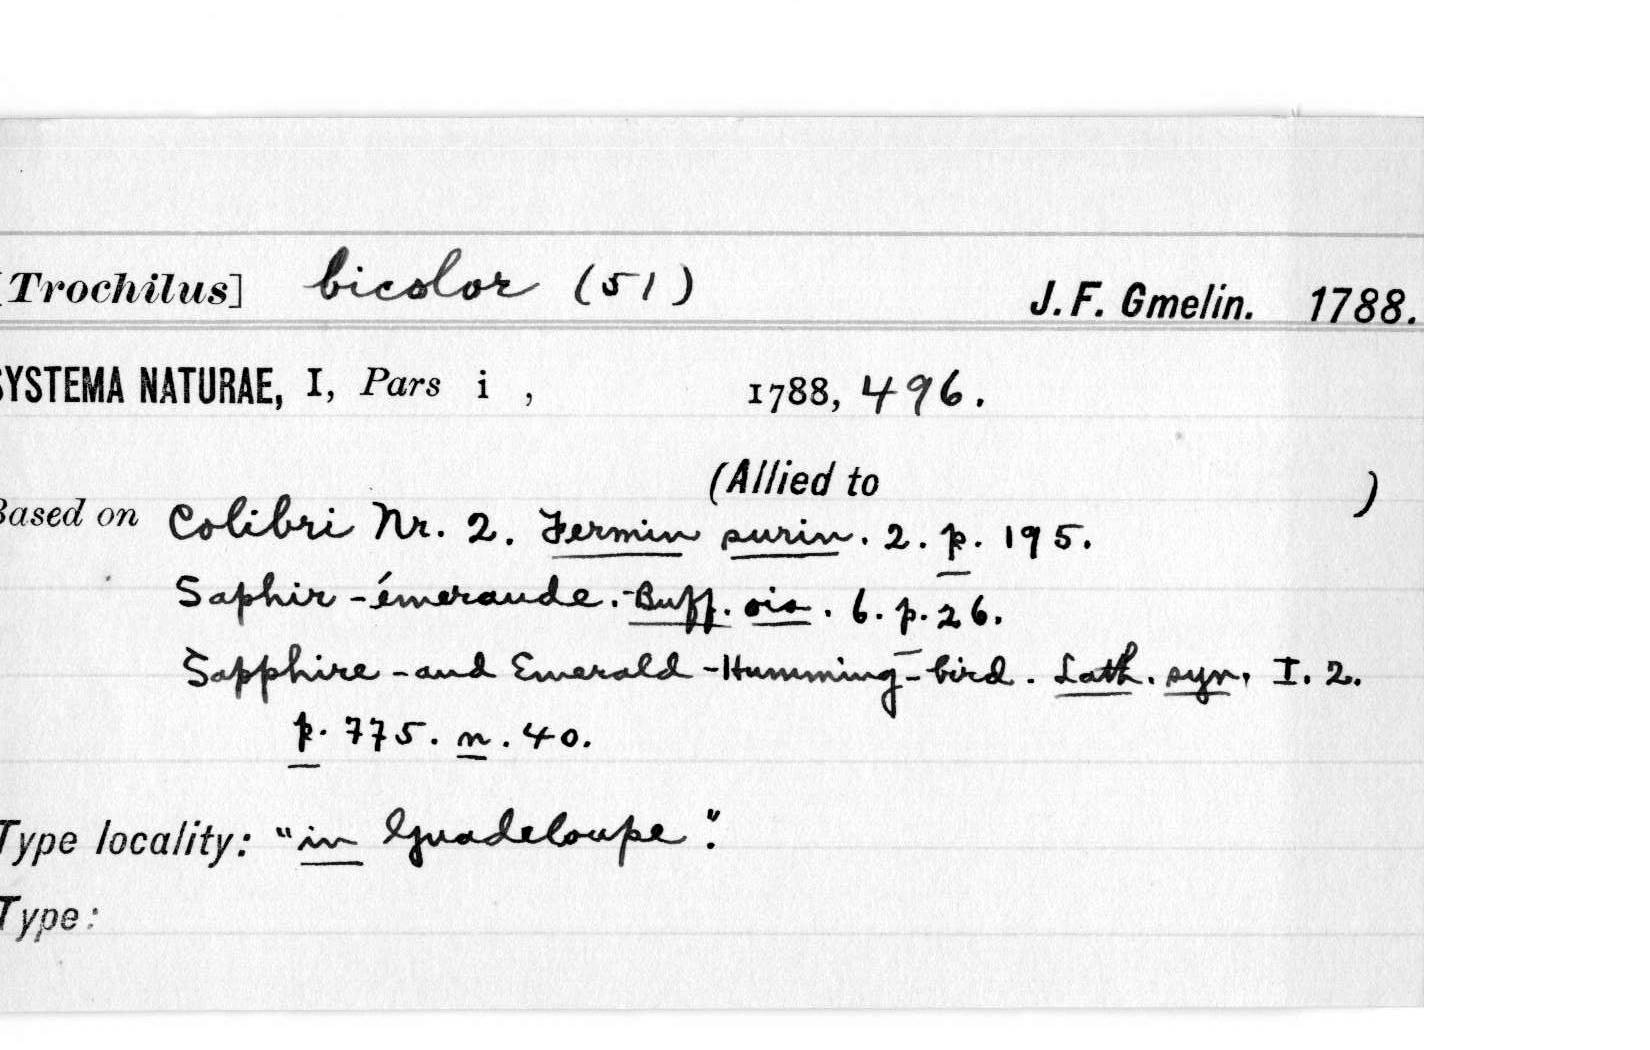 [Trochilus] bicolor (51) J. F. Gmelin. 1788.
SYSTEMA NATURAE, I, Pars i , 1788, 496.
(Allied to )
Based on Colibri Nr. 2. Fermin surin. 2. p. 195.
Saphir-émeraude. Buff. ois. 6. p. 26.
Sapphire-and Emerald-Humming-bird. Lath. syn. I. 2.
p. 775. n. 40.
Type locality: "in Guadeloupe".
Type: